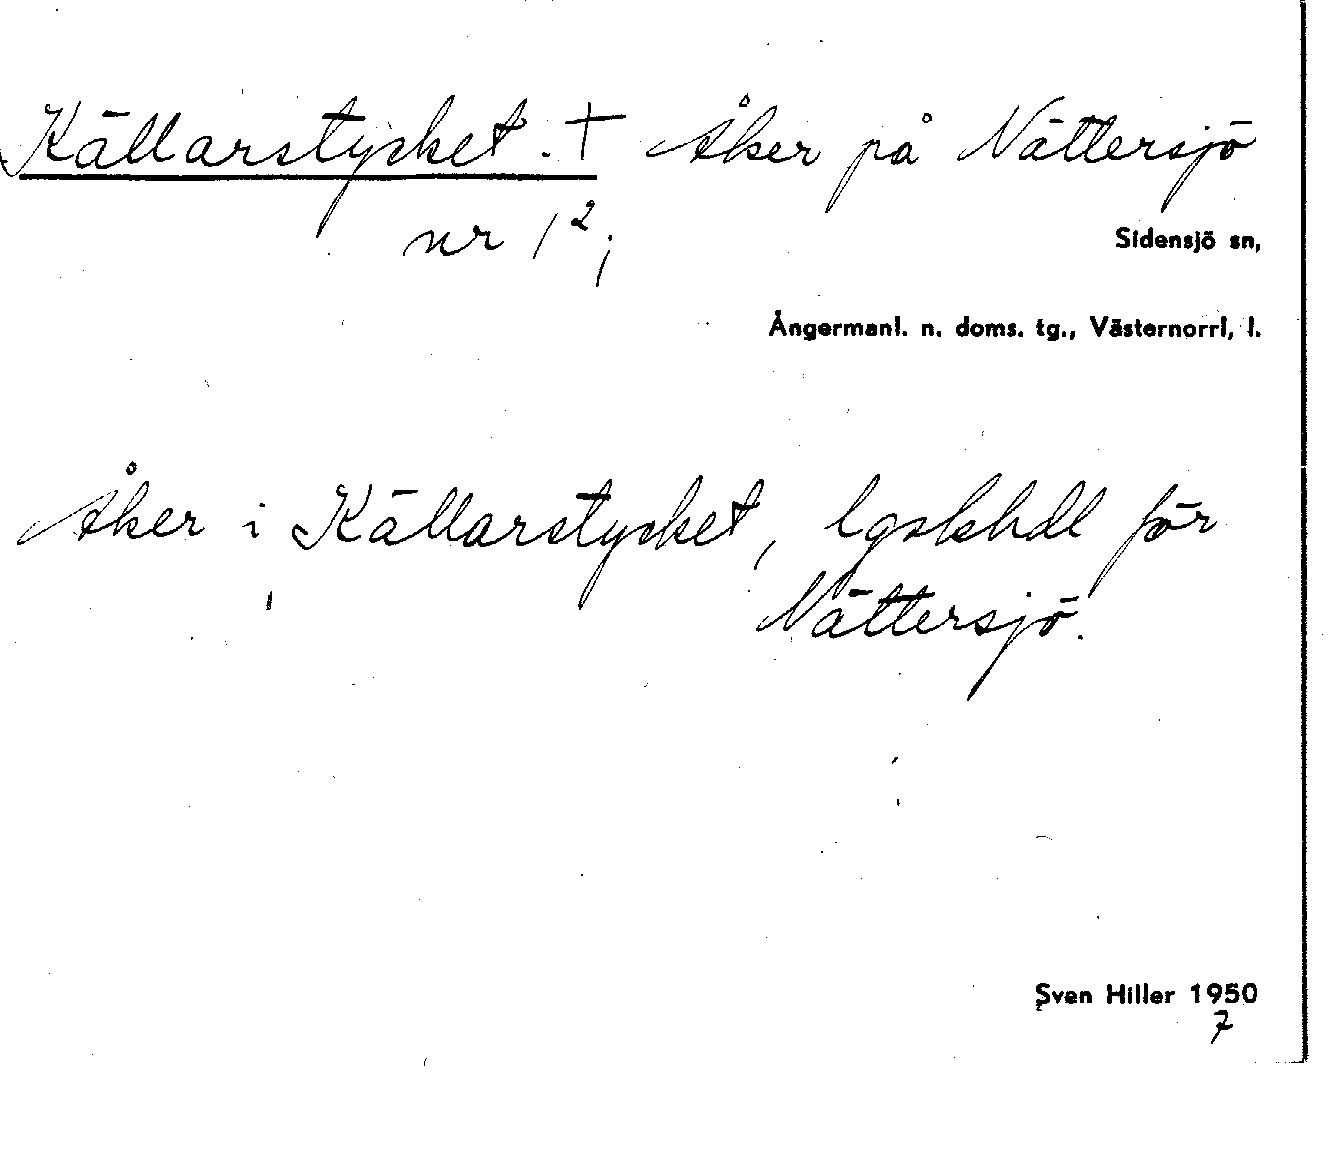 Källarstycket. + Åker på Nättersjö
nr 1²;
Sidensjö sn,
Ångermanl. n. doms. tg., Västernorrl, l.
Åker i Källarstycket, lgskhdl för
Nättersjö.
Sven Hiller 1950
7